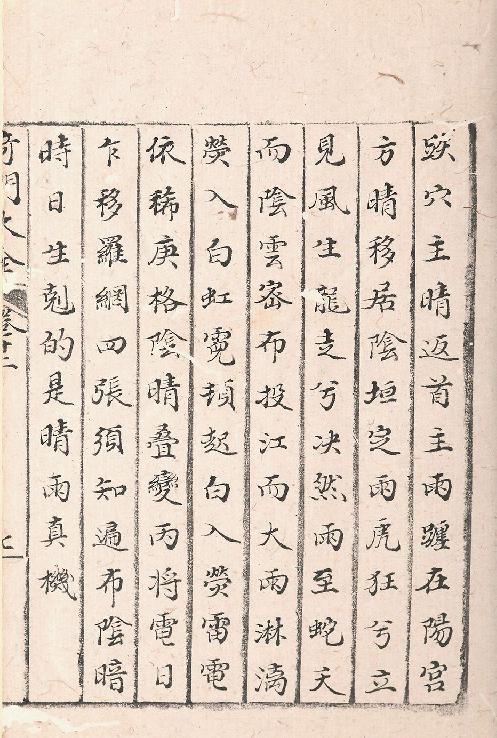 跌穴主晴返首主雨躔在陽宮
方晴移居陰垣定雨虎狂兮立
見風生龍走兮决然雨至蛇夭
而陰雲密布投江而大雨淋漓
熒入白虹霓頓起白入熒雷電
依稀庚格陰晴叠變丙将電日
乍移羅網四張須知遍布陰暗
時日生剋的是晴雨真機
奇門大全